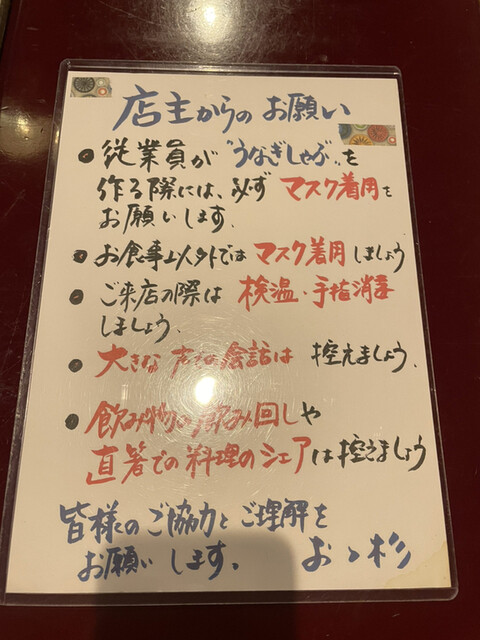 店主からのお願い
● 従業員が〝うなぎしゃぶ〟を
作る際には、必ずマスク着用を
お願いします。
● お食事以外ではマスク着用しましょう
● ご来店の際は 検温・手指消毒
しましょう。
● 大きな声での会話は 控えましょう。
● 飲み物の飲み回しや
直箸での料理のシェアは控えましょう
皆様のご協力とご理解を
お願いします。 おゝ杉